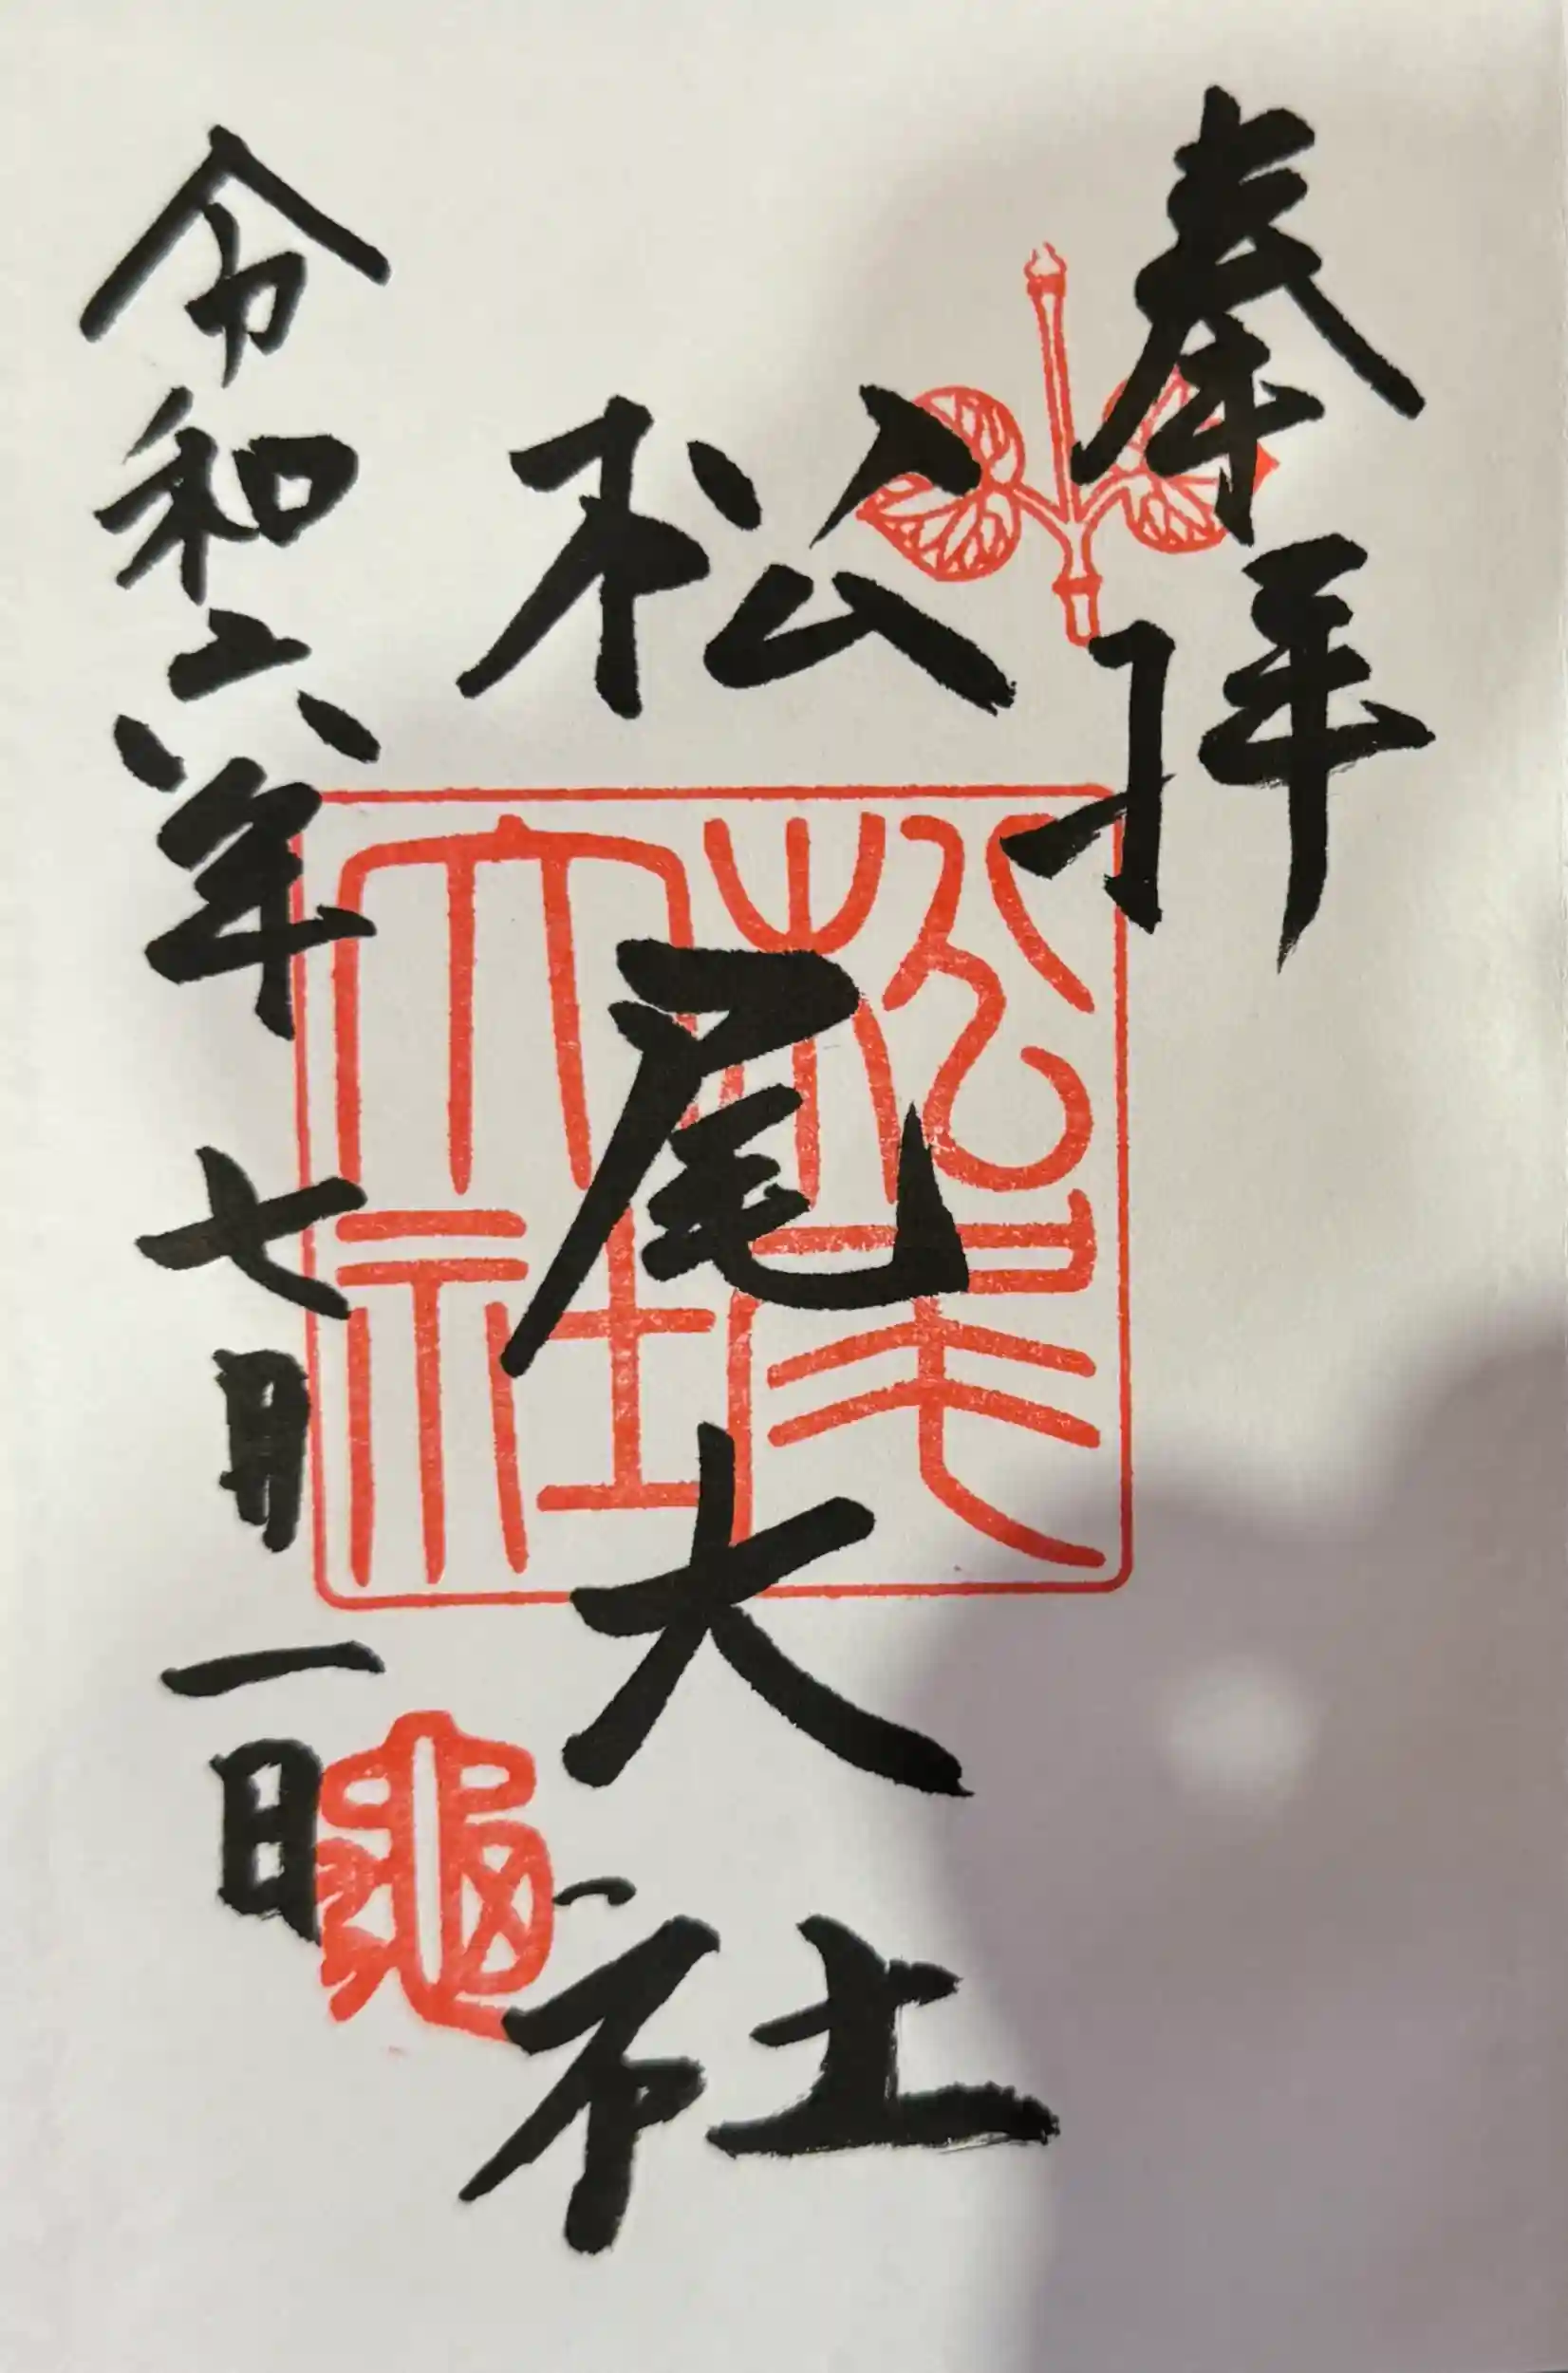 奉拝
松尾大社
松尾大社
令和六年 七月 一日